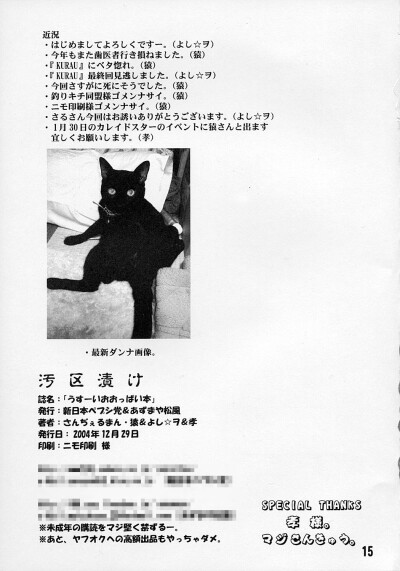 近況
・はじめましてよろしくですー。(よし☆ヲ)
・今年もまた歯医者行き損ねました。(猿)
・『KURAU』にベタ惚れ。(猿)
・『KURAU』最終回見逃しました。(よし☆ヲ)
・今回さすがに死にそうでした。(猿)
・釣りキチ同盟様ゴメンナサイ。(猿)
・ニモ印刷様ゴメンナサイ。(猿)
・さるさん今回はお誘いありがとうございます。(よし☆ヲ)
・1月30日のカレイドスターのイベントに猿さんと出ます
宜しくお願いします。(孝)
・最新ダンナ画像。
汚区漬け
誌名:「うすーいおおっぱい本」
発行:新日本ペプシ党&あずまや松風
著者:さんぢぇるまん・猿&よし☆ヲ&孝
発行日:2004年12月29日
印刷:ニモ印刷 様
※未成年の購読をマジ堅く禁ずるー。
※あと、ヤフオクへの高額出品もやっちゃダメ。
SPECIAL THANKS
孝 様。
マジさんきゅう。
15